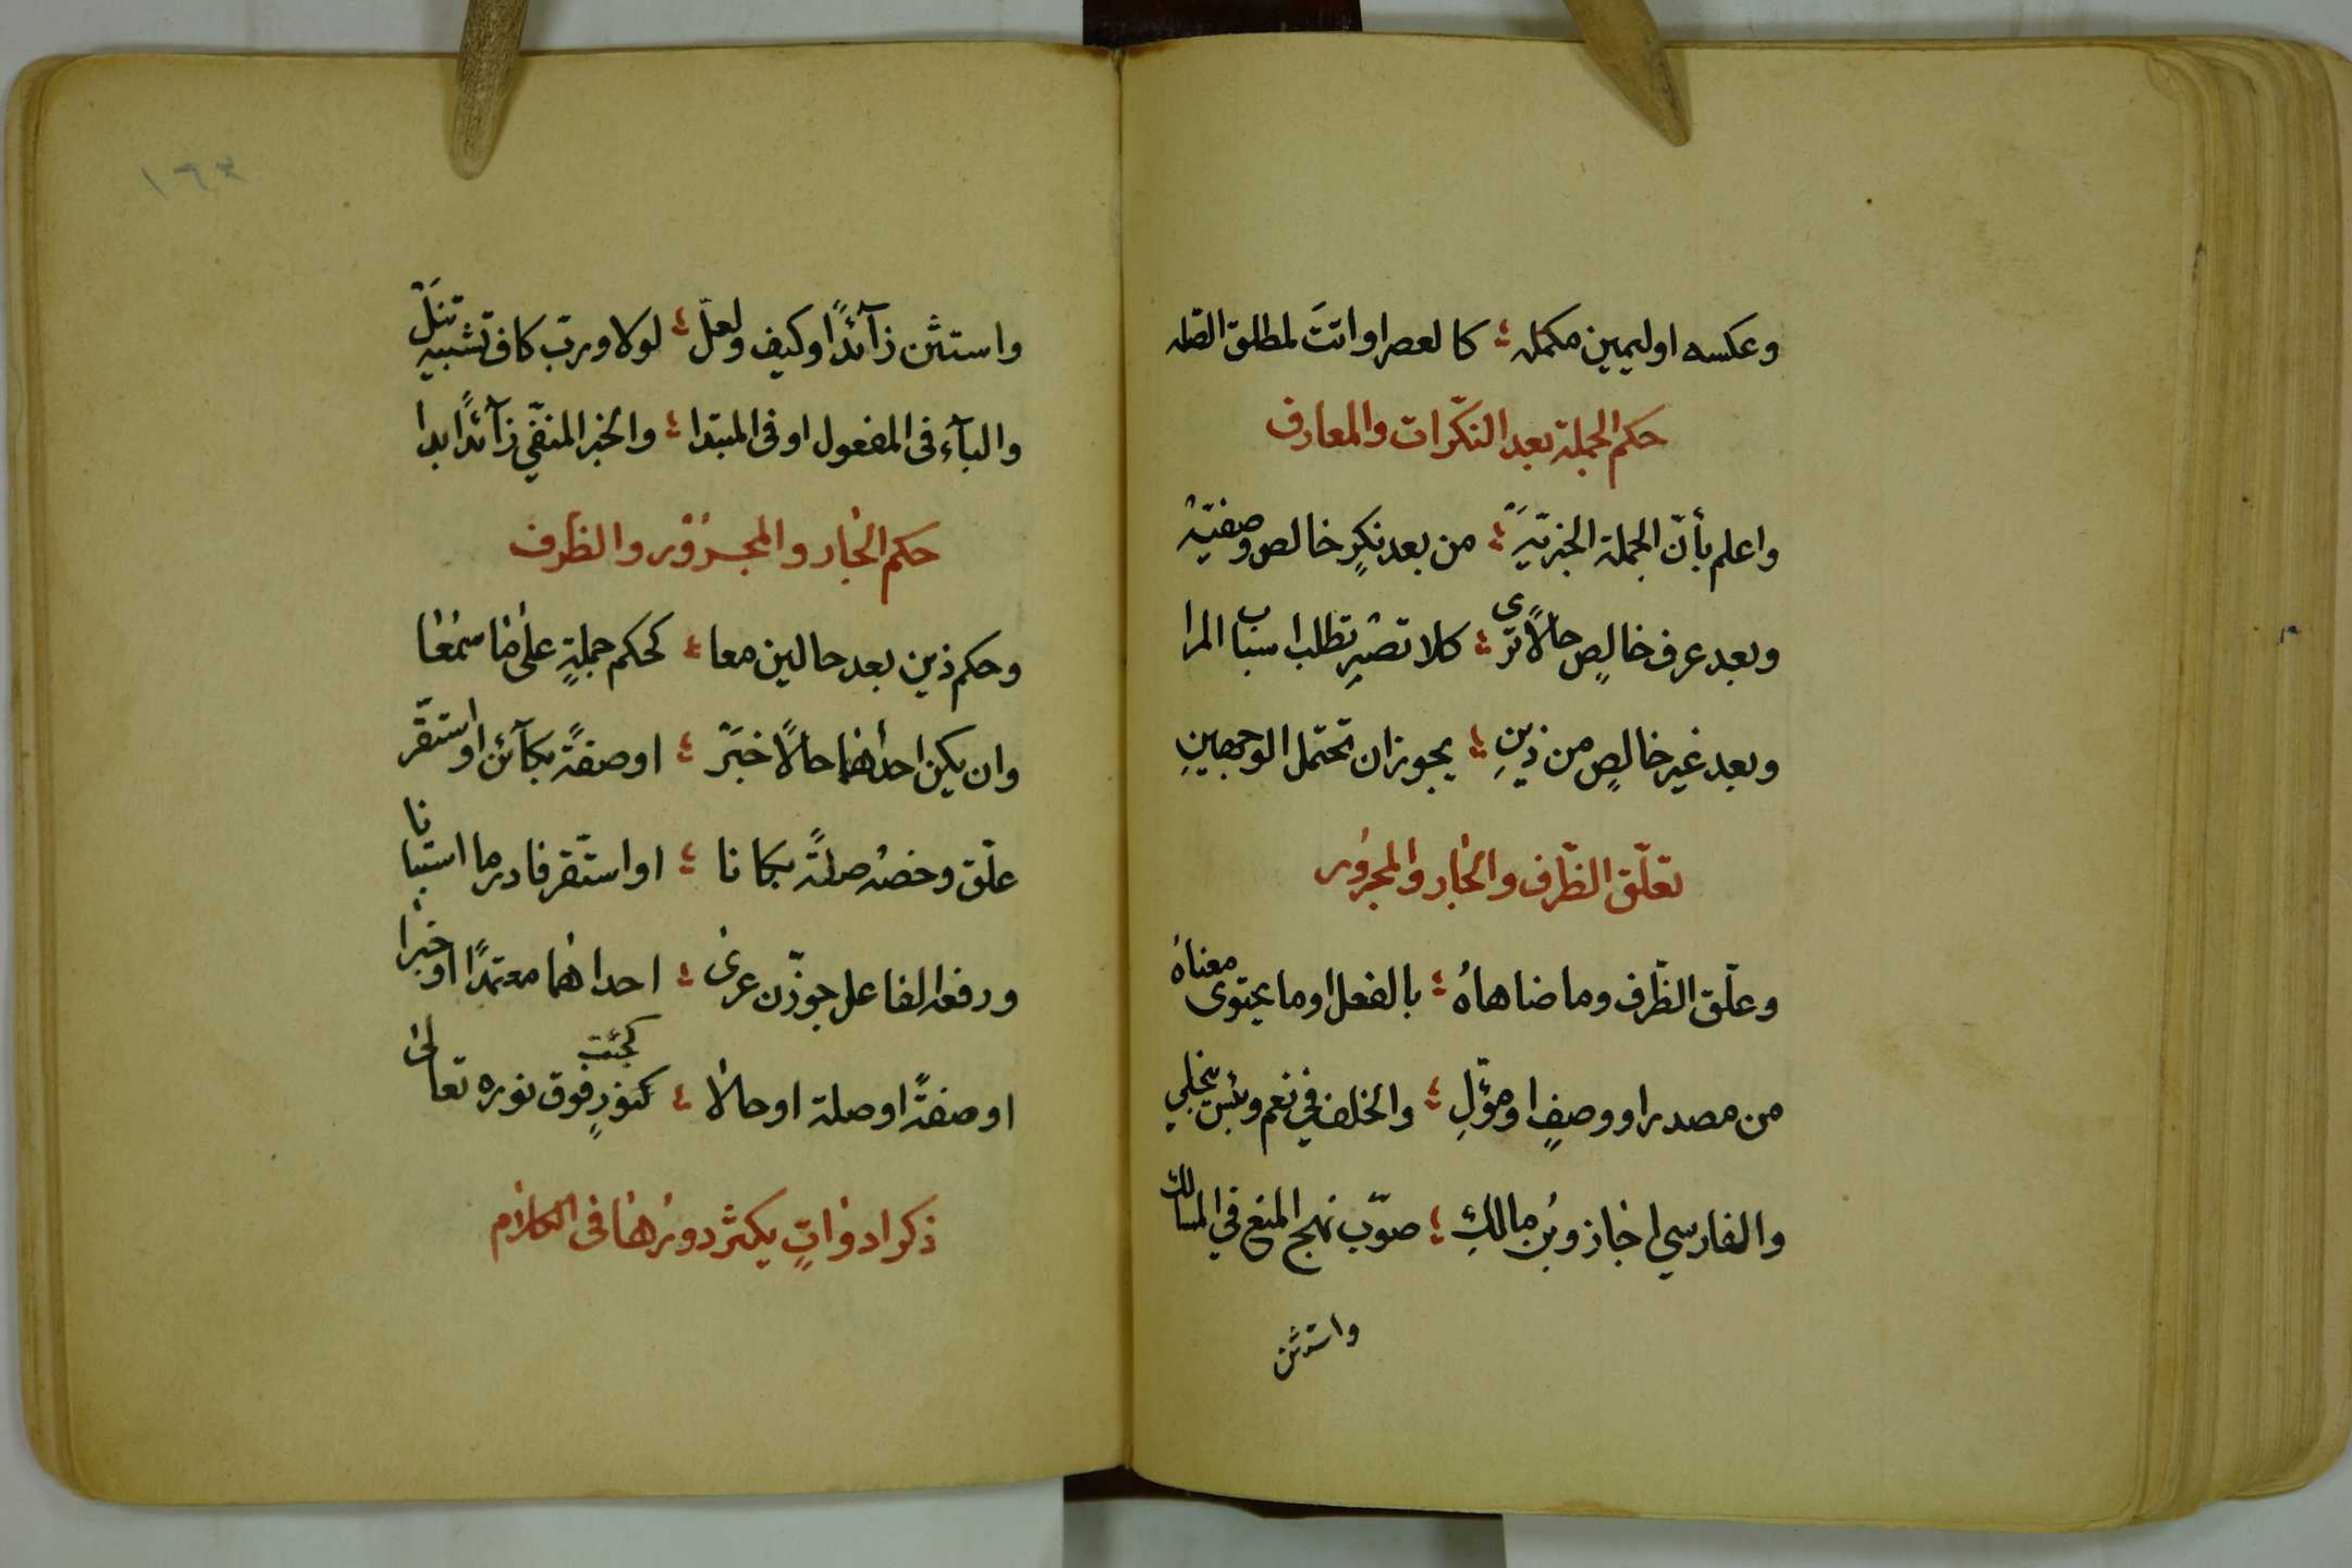 وعكسه اوليمين مكمله ؛ كالعصر اواتت لمطلق الصله
حكم الجملة بعد النكّرات والمعارف
واعلم بأنّ الجملة الخبريّةَ ؛ من بعد نكرٍ خالص وصفيّه
وبعد عرف خالصٍ حالاً ترى ؛ كلا تصرِ تطلب اسباب المرا
وبعد غير خالصٍ من ذينِ ؛ يجوزان تحتمل الوجهينِ
تعلّق الظّرف والجار والمجرور
وعلّق الظّرف وما ضاهاهُ ؛ بالفعل اوما يحتوى معناهُ
من مصدر او وصفٍ اومؤّلِ ؛ والخلف في نعم وبئس ينجلي
والفارسي اجاز وبن مالكِ ؛ صوّب نهج المنع في المسالك
واستثن
١٦٣
واستثن زآئداً وكيف ولعلّ ؛ لولا ورب كاف تشبيه تنَلْ
والبآء فى المفعول اوفى المبتدا ؛ والخبر المنفّي زآئداً ابدا
حكم الجار والمجرور والظرف
وحكم ذين بعد حالين معا ؛ كحكم جملةٍ على ما سمعا
وان يكن احداهما حالاً خبَرْ ؛ اوصفةً بكآئن اواستقّر
علّق وخصه صلةً بكانا ؛ اواستقّر فادر ما استبانا
ورفعه الفاعل جوّزن عرى ؛ احداهما معتمدًا اوخبرا
اوصفةً اوصلة اوحالا ؛ كجئت كنورٍ فوق نوره تعالى
ذكر ادواتٍ يكثر دورها فى الكلام